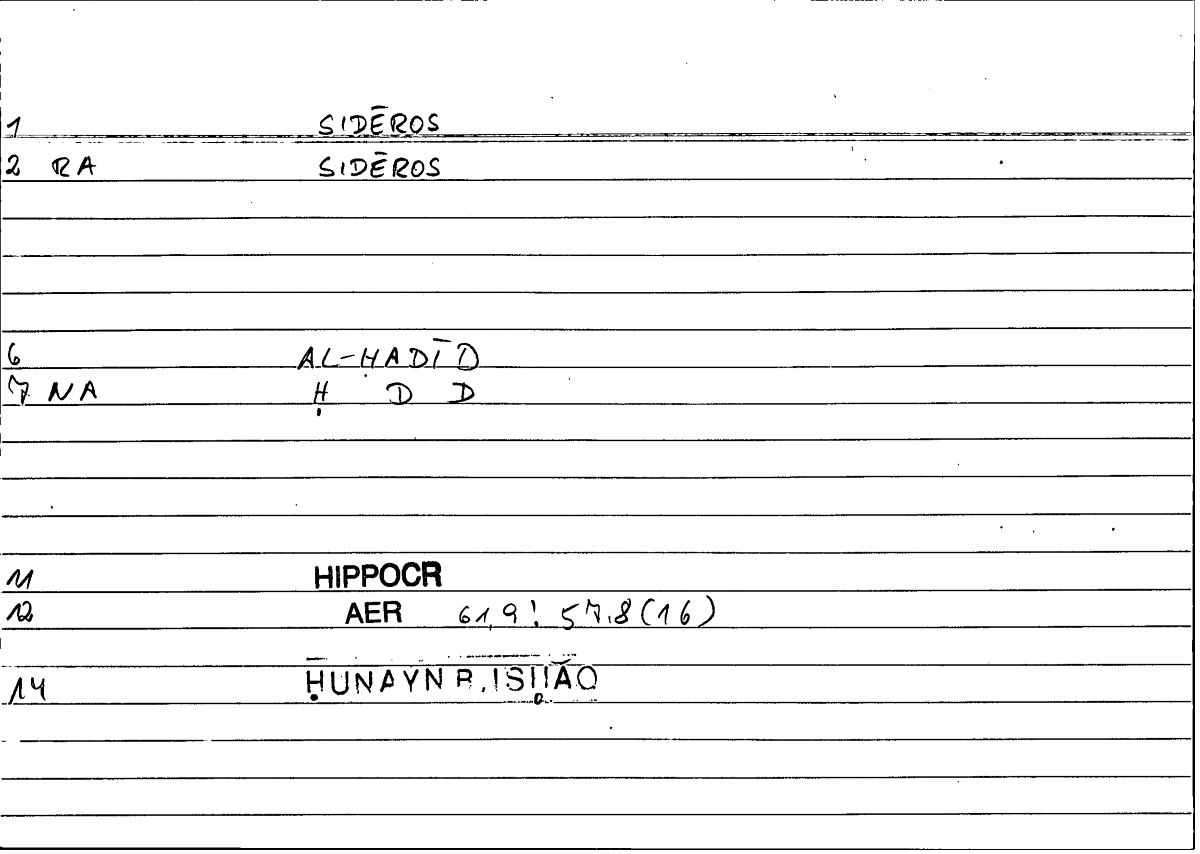 1 SIDĒROS
2 RA SIDĒROS
6 AL-ḤADĪD
7 NA Ḥ D D
11 HIPPOCR
12 AER 61,9! 57.8(16)
14 ḤUNAYN B. ISḤĀQ